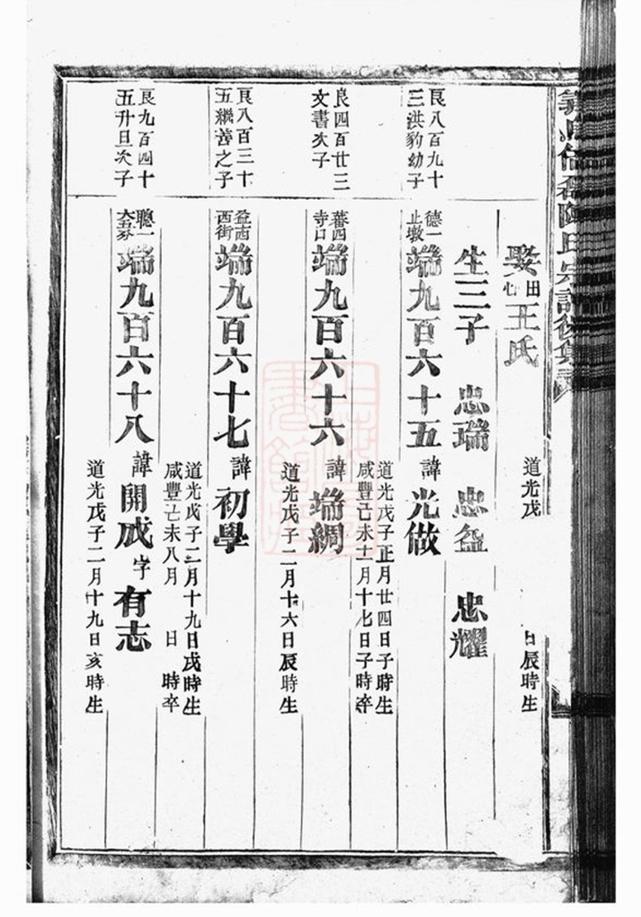 倍磊陳氏宗譜後集
娶田心王氏 道光戊 日辰時生
生三子 忠瑞 忠益 忠耀
艮八百九十
三洪豹幼子
德一
止墩
端九百六十五 諱光做
道光戊子正月廿四日子時生
咸豐己未十一月十七日子時卒
艮四百廿三
文書次子
蕃四
寺口
端九百六十六 諱端綢
道光戊子二月十六日辰時生
艮八百三十
五繼善之子
益西
西街
端九百六十七 諱初學
道光戊子二月十九日戌時生
咸豐己未八月 日 時卒
艮九百四十
五升旦次子
聰一
端九百六十八 諱開成字有志
道光戊子二月十九日亥時生